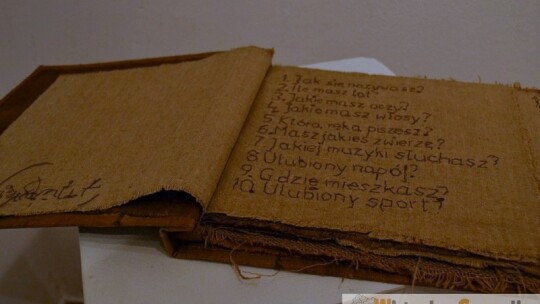 1. Jak się nazywasz?
2. Ile masz lat?
3. Jakie masz oczy?
4. Jakie masz włosy?
5. Którą ręką piszesz?
6. Masz jakieś zwierzę?
7. Jakiej muzyki słuchasz?
8. Ulubiony napój?
9. Gdzie mieszkasz?
10. Ulubiony sport?